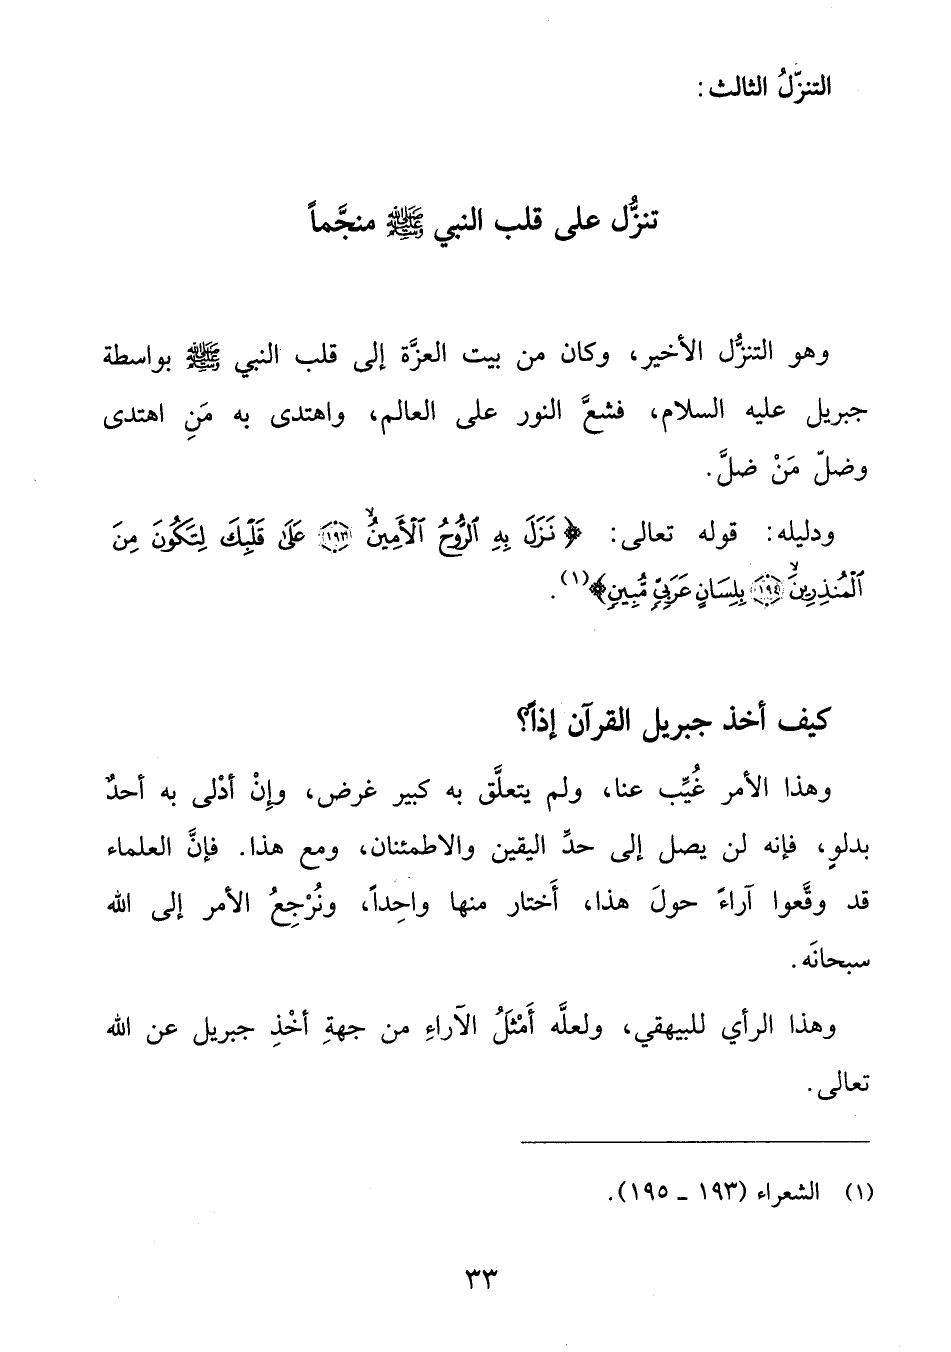 التنزّلُ الثالث:
تنزُّل على قلب النبي ﷺ منجَّماً
وهو التنزُّل الأخير، وكان من بيت العزَّة إلى قلب النبي ﷺ بواسطة
جبريل عليه السلام، فشعَّ النور على العالم، واهتدى به مَنِ اهتدى
وضلّ مَنْ ضلَّ.
ودليله: قوله تعالى: ﴿نَزَلَ بِهِ ٱلرُّوحُ ٱلْأَمِينُ ۙ ١٩٣ عَلَىٰ قَلْبِكَ لِتَكُونَ مِنَ
ٱلْمُنذِرِينَ ۙ ١٩٤ بِلِسَانٍ عَرَبِيٍّ مُّبِينٍ﴾(١).
كيف أخذ جبريل القرآن إذاً؟
وهذا الأمر غُيِّب عنا، ولم يتعلَّق به كبير غرض، وإنْ أدْلى به أحدٌ
بدلوٍ، فإنه لن يصل إلى حدِّ اليقين والاطمئنان، ومع هذا. فإنَّ العلماء
قد وقَّعوا آراءً حولَ هذا، أَختار منها واحِداً، ونُرْجِعُ الأمر إلى الله
سبحانَه.
وهذا الرأي للبيهقي، ولعلَّه أَمْثَلُ الآراءِ من جهةِ أخْذِ جبريل عن الله
تعالى.
(١) الشعراء (١٩٣ ـ ١٩٥).
٣٣